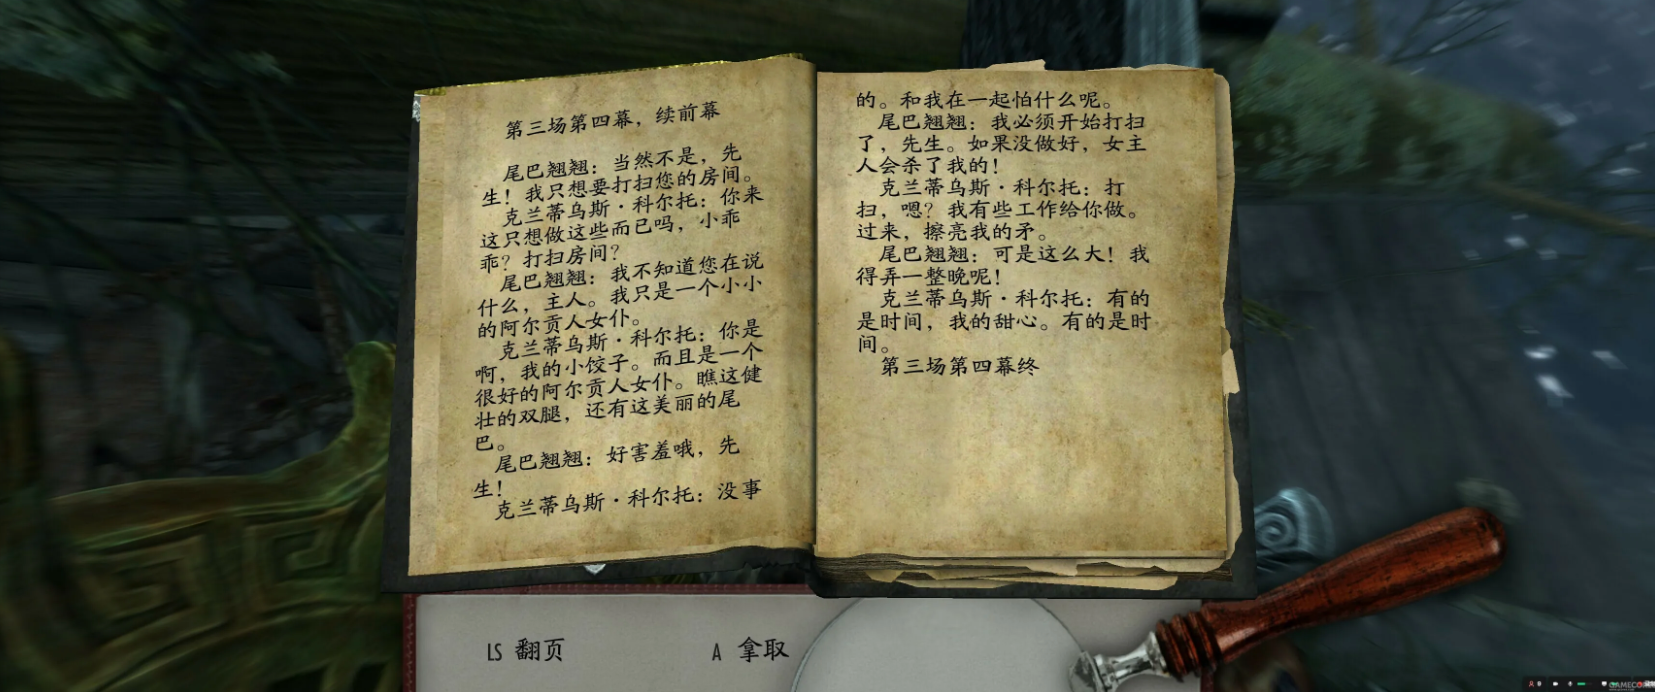 第三场第四幕，续前幕
尾巴翘翘：当然不是，先
生！我只想要打扫您的房间。
克兰蒂乌斯·科尔托：你来
这只想做这些而已吗，小乖
乖？打扫房间？
尾巴翘翘：我不知道您在说
什么，主人。我只是一个小小
的阿尔贡人女仆。
克兰蒂乌斯·科尔托：你是
啊，我的小饺子。而且是一个
很好的阿尔贡人女仆。瞧这健
壮的双腿，还有这美丽的尾
巴。
尾巴翘翘：好害羞哦，先
生！
克兰蒂乌斯·科尔托：没事
的。和我在一起怕什么呢。
尾巴翘翘：我必须开始打扫
了，先生。如果没做好，女主
人会杀了我的！
克兰蒂乌斯·科尔托：打
扫，嗯？我有些工作给你做。
过来，擦亮我的矛。
尾巴翘翘：可是这么大！我
得弄一整晚呢！
克兰蒂乌斯·科尔托：有的
是时间，我的甜心。有的是时
间。
第三场第四幕终
LS 翻页
A 拿取